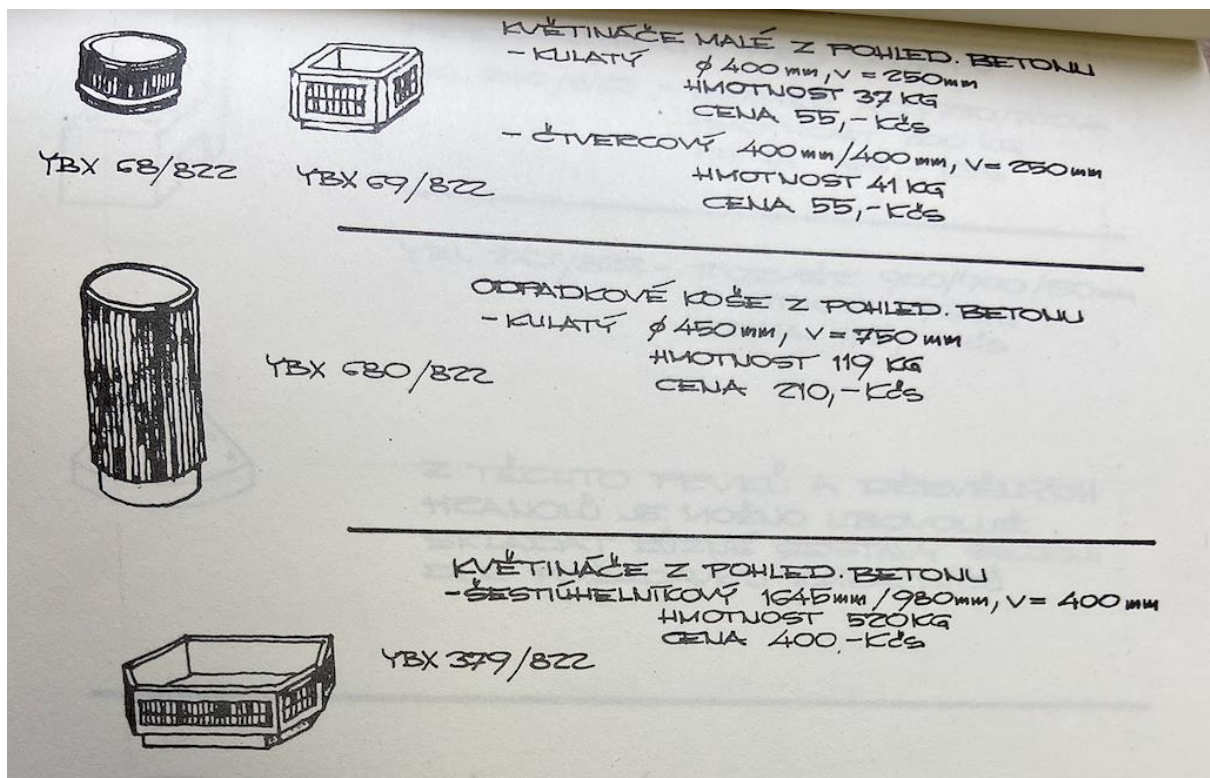 KVĚTINÁČE MALÉ Z POHLED. BETONU
- KULATÝ ϕ 400 mm, V = 250 mm
HMOTNOST 37 KG
CENA 55,- Kčs
- ČTVERCOVÝ 400 mm/400 mm, V = 250 mm
HMOTNOST 41 KG
CENA 55,- Kčs
YBX 68/822
YBX 69/822
ODPADKOVÉ KOŠE Z POHLED. BETONU
- KULATÝ ϕ 450 mm, V = 750 mm
HMOTNOST 119 KG
CENA 210,- Kčs
YBX 680/822
KVĚTINÁČE Z POHLED. BETONU
- ŠESTIÚHELNÍKOVÝ 1645 mm/980 mm, V = 400 mm
HMOTNOST 520 KG
CENA 400,- Kčs
YBX 379/822